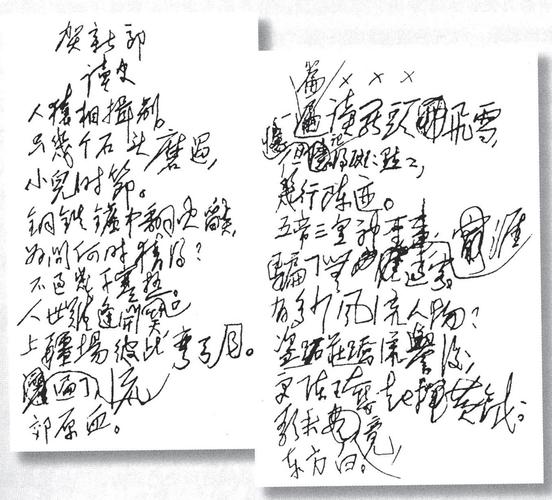 贺新郎
读史
人猿相揖别。
只幾个石头磨过,
小兒时節。
铜铁爐中翻火焰,
为问何时猜得?
不过幾千寒热。
人世难逢開口笑。
上疆場彼此弯弓月。
遍了流
郊原血。
篇 × × ×
一遍读罢头飞雪,
但记得斑斑点点,
幾行陈迹。
五帝三皇神圣事,
騙了無涯过客。
有多少风流人物?
盗跖莊蹻流譽後,
更陈王奮起挥黄钺。
歌未竟,
东方白。